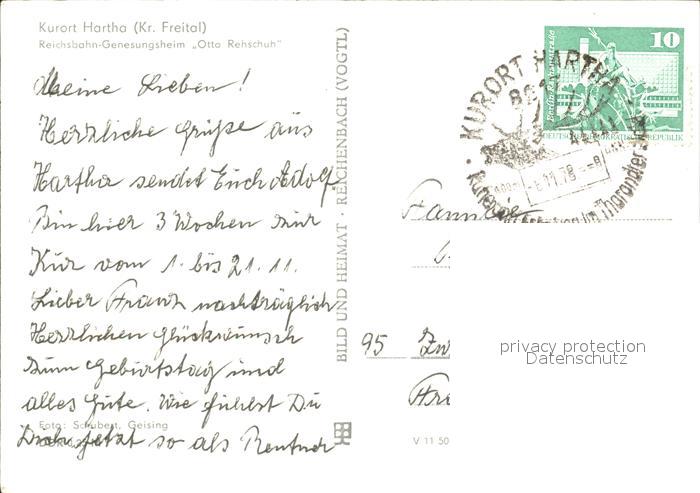 Kurort Hartha (Kr. Freital)
Reichsbahn-Genesungsheim „Otto Rehschuh"
Meine Lieben!
Herzliche Grüße aus
Hartha sendet Euch Adolf
Bin hier 3 Wochen zur
Kur vom 1. bis 21.11.
Lieber Franz nachträglich
Herzlichen Glückwunsch
zum Geburtstag und
alles Gute. Wie fühlst Du
Dich jetzt so als Rentner
Foto: Schubert, Geising
BILD UND HEIMAT · REICHENBACH (VOGTL)
V 11 50
10
DEUTSCHE DEMOKRATISCHE REPUBLIK
KURORT HARTHA
im Tharandter
Familie
95 Zw
privacy protection
Datenschutz